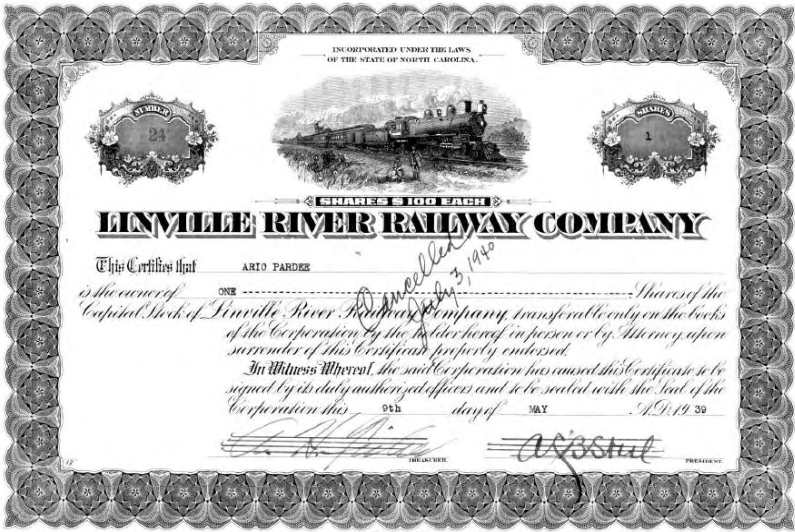 INCORPORATED UNDER THE LAWS
OF THE STATE OF NORTH CAROLINA.
NUMBER
24
SHARES
1
SHARES $100 EACH
LINVILLE RIVER RAILWAY COMPANY
This Certifies that ARIO PARDEE
is the owner of ONE Shares of the
Capital Stock of Linville River Railway Company, transferable only on the books
of the Corporation by the holder hereof in person or by Attorney, upon
surrender of this Certificate properly endorsed.
In Witness Whereof, the said Corporation has caused this Certificate to be
signed by its duly authorized officers and to be sealed with the Seal of the
Corporation this 9th day of MAY A.D. 19 39
Cancelled
July 3, 1940
TREASURER.
PRESIDENT.